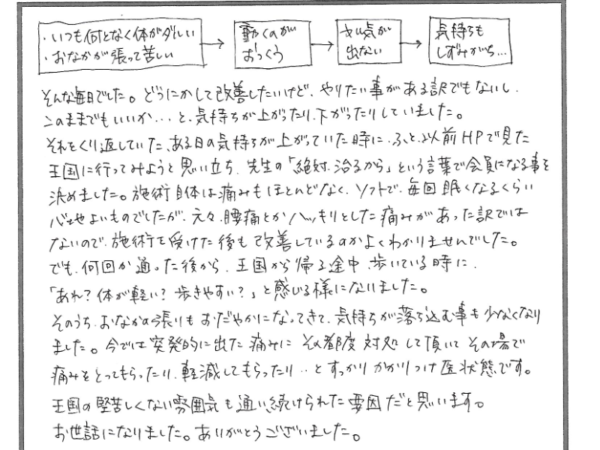 ・いつも何となく体がダルい
・おなかが張って苦しい
動くのが
おっくう
やる気が
出ない
気持ちも
しずみがち…
そんな毎日でした。どうにかして改善したいけど、やりたい事がある訳でもないし、
このままでもいいか…と、気持ちが上がったり、下がったりしていました。
それをくり返していた、ある日の気持ちが上がっていた時に、ふと、以前HPで見た
王国に行ってみようと思い立ち、先生の「絶対、治るから」という言葉で会員になる事を
決めました。施術自体は痛みもほとんどなく、ソフトで、毎回眠くなるくらい
心地よいものでしたが、元々、腰痛とかハッキリとした痛みがあった訳では
ないので、施術を受けた後も改善しているのかよくわかりませんでした。
でも、何回か通った後から、王国から帰る途中、歩いている時に、
「あれ?体が軽い?歩きやすい?」と感じる様になりました。
そのうち、おなかの張りもおだやかになってきて、気持ちが落ち込む事も少なくなり
ました。今では突発的に出た痛みにその都度対処して頂いてその場で
痛みをとってもらったり、軽減してもらったり…とすっかりかかりつけ医状態です。
王国の堅苦しくない雰囲気も通い続けられた要因だと思います。
お世話になりました。ありがとうございました。